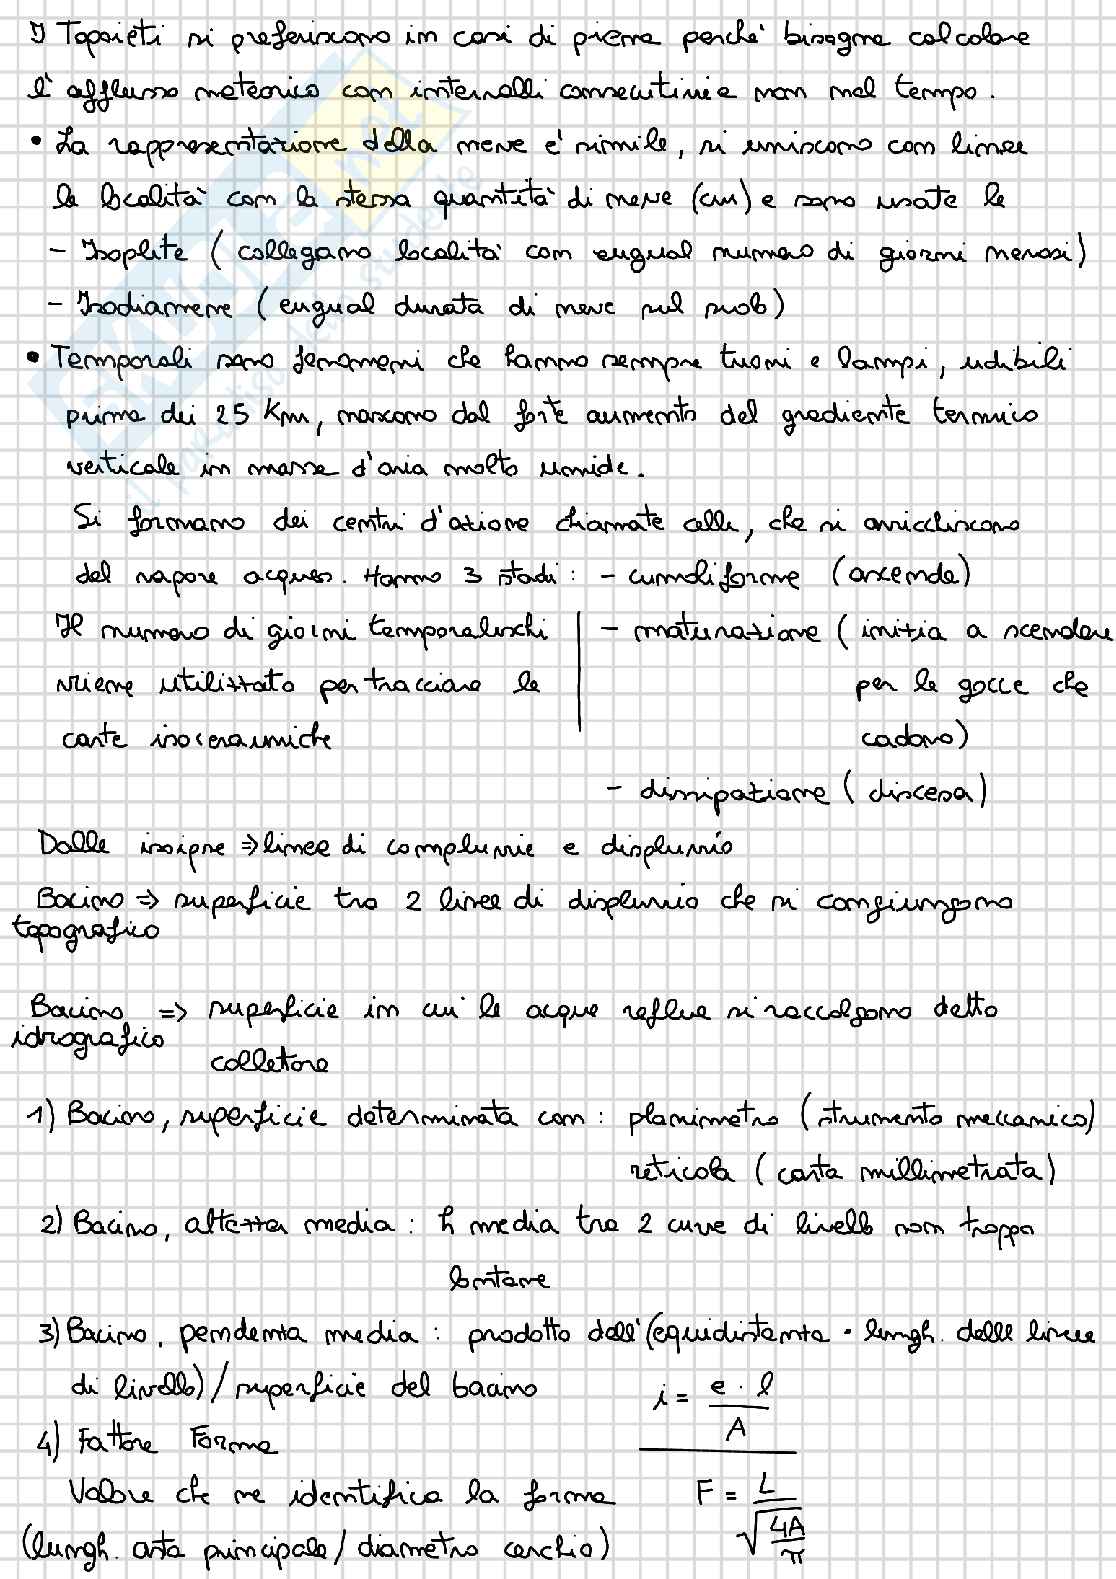 I Topoieti si preferiscono in casi di piena perché bisogna calcolare
l'afflusso meteorico con intervalli consecutivi e non nel tempo.
• La rappresentazione della neve è simile, si uniscono con linee
le località con la stessa quantità di neve (cm) e sono usate le
- Isoplite (collegano località con eugual numero di giorni nevosi)
- Isodiamene (eugual durata di neve sul suolo)
• Temporali sono fenomeni che hanno sempre tuoni e lampi, udibili
prima dei 25 Km, nascono dal forte aumento del gradiente termico
verticale in masse d'aria molto umide.
Si formano dei centri d'azione chiamate celle, che si arricchiscono
del vapore acqueo. Hanno 3 stadi: - cumuliforme (ascende)
Il numero di giorni temporaleschi
- maturazione (inizia a scendere
viene utilizzato per tracciare le
per le gocce che
carte isocerauniche
cadono)
- dissipazione (discesa)
Dalle isoipse => linee di compluvie e displuvio
Bacino => superficie tra 2 linee di displuvio che si congiungono
topografico
Bacino => superficie in cui le acque reflue si raccolgono detto
idrografico
collettore
1) Bacino, superficie determinata con: planimetro (strumento meccanico)
reticola (carta millimetrata)
2) Bacino, altezza media: h media tra 2 curve di livello non troppo
lontane
3) Bacino, pendenza media: prodotto dell'(equidistanza · lungh. delle linee
di livello) / superficie del bacino
i = e · l / A
4) Fattore Forma
Valore che ne identifica la forma
F = L / √(4A/π)
(lungh. asta principale / diametro cerchio)